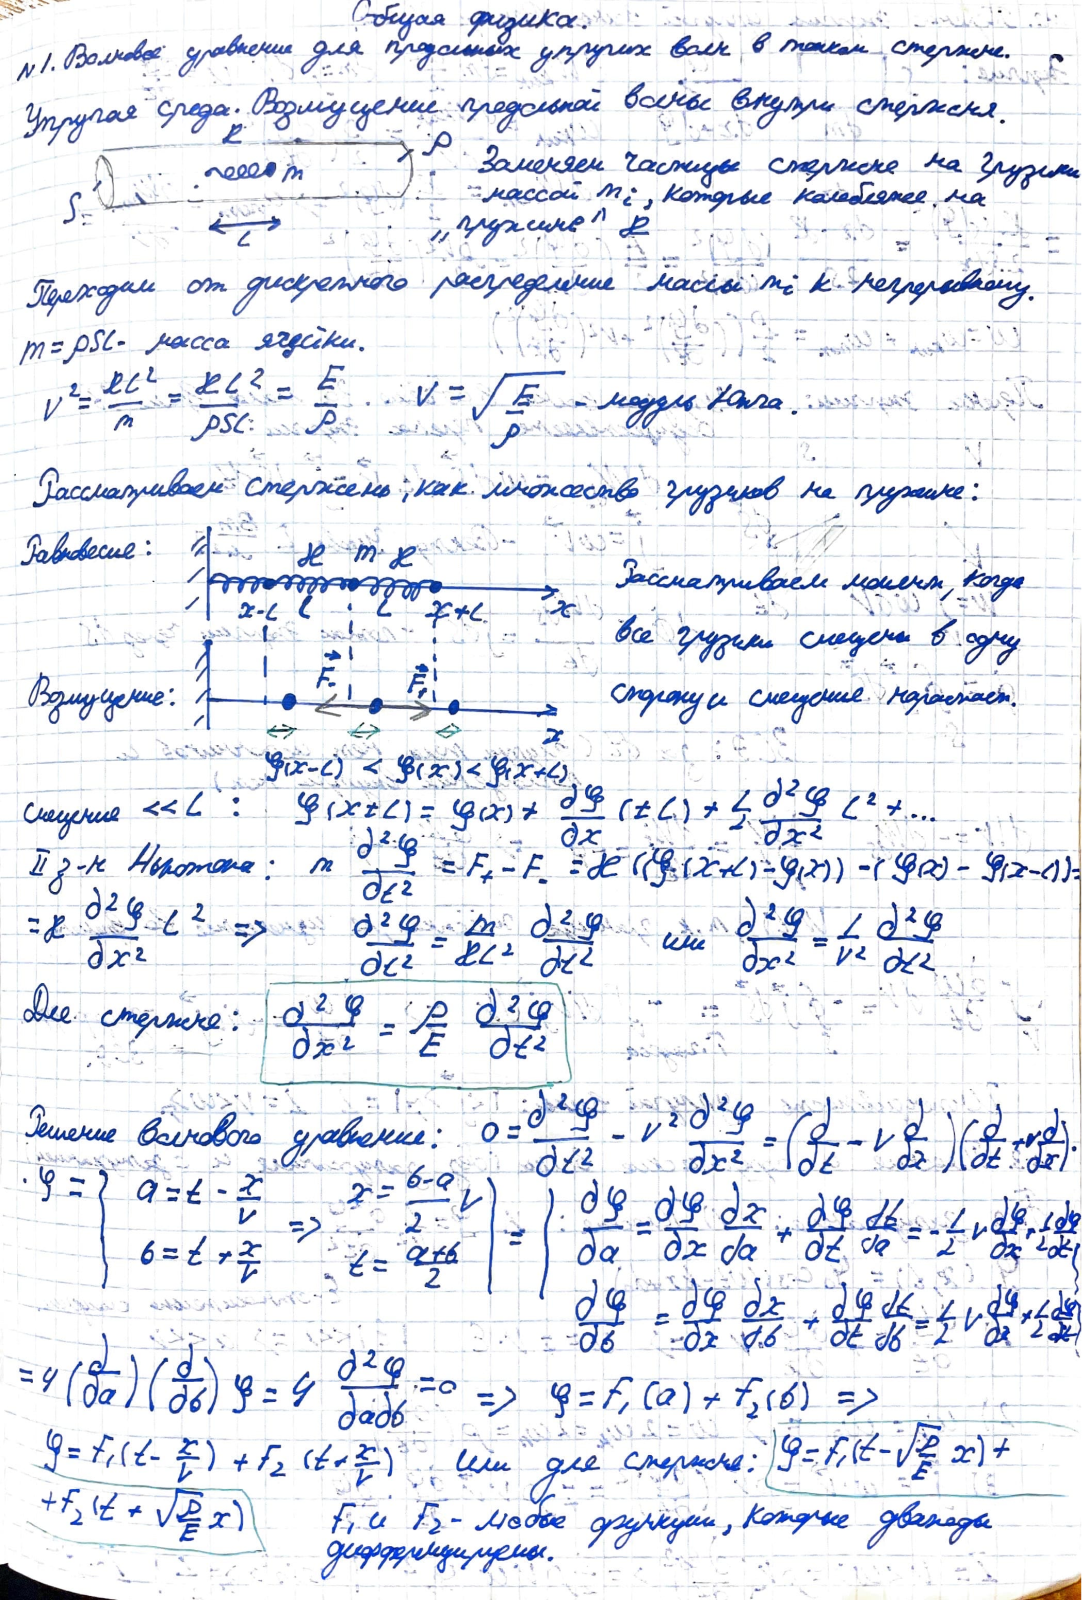 Общая физика.
№1. Волновое уравнение для продольных упругих волн в тонком стержне.
Упругая среда. Возмущение продольной волны внутри стержня.
ϰ ρ
S m
L
Заменяем частицы стержня на грузики
массой mᵢ, которые колеблятся на
„пружине" ϰ
Переходим от дискретного распределение массы mᵢ к непрерывному.
m = ρSL - масса ячейки.
V² = ϰL²/m = ϰL²/ρSL = E/ρ . V = √(E/ρ) - модуль Юнга.
Рассматриваем стержень, как множество грузиков на пружине:
Равновесие: ϰ m ϰ
x-L L L x+L x
Рассматриваем момент, когда
все грузики смещены в одну
сторону и смещение нарастает.
Возмущение: F₋ F₊ x
φ(x-L) < φ(x) < φ(x+L)
смещение << L : φ(x±L) = φ(x) + ∂φ/∂x (±L) + 1/2 ∂²φ/∂x² L² + ...
II з-н Ньютона: m ∂²φ/∂t² = F₊ - F₋ = ϰ((φ(x+L) - φ(x)) - (φ(x) - φ(x-L)) =
= ϰ ∂²φ/∂x² L² => ∂²φ/∂t² = m/ϰL² ∂²φ/∂t² или ∂²φ/∂x² = 1/V² ∂²φ/∂t²
Для стержня: ∂²φ/∂x² = ρ/E ∂²φ/∂t²
Решение волнового уравнение: 0 = ∂²φ/∂t² - V² ∂²φ/∂x² = (∂/∂t - V ∂/∂x)(∂/∂t + V ∂/∂x)·
·φ = { a = t - x/V x = (b-a)/2 V } = { ∂φ/∂a = ∂φ/∂x ∂x/∂a + ∂φ/∂t ∂t/∂a = -1/2 V ∂φ/∂x + 1/2 ∂φ/∂t }
b = t + x/V => t = (a+b)/2 ∂φ/∂b = ∂φ/∂x ∂x/∂b + ∂φ/∂t ∂t/∂b = 1/2 V ∂φ/∂x + 1/2 ∂φ/∂t
= 4 (∂/∂a)(∂/∂b) φ = 4 ∂²φ/∂a∂b = 0 => φ = F₁(a) + F₂(b) =>
φ = F₁(t - x/V) + F₂(t + x/V) или для стержня: φ = F₁(t - √(ρ/E) x) +
+ F₂(t + √(ρ/E) x) F₁ и F₂ - любые функции, которые дважды
дифференцируемы.